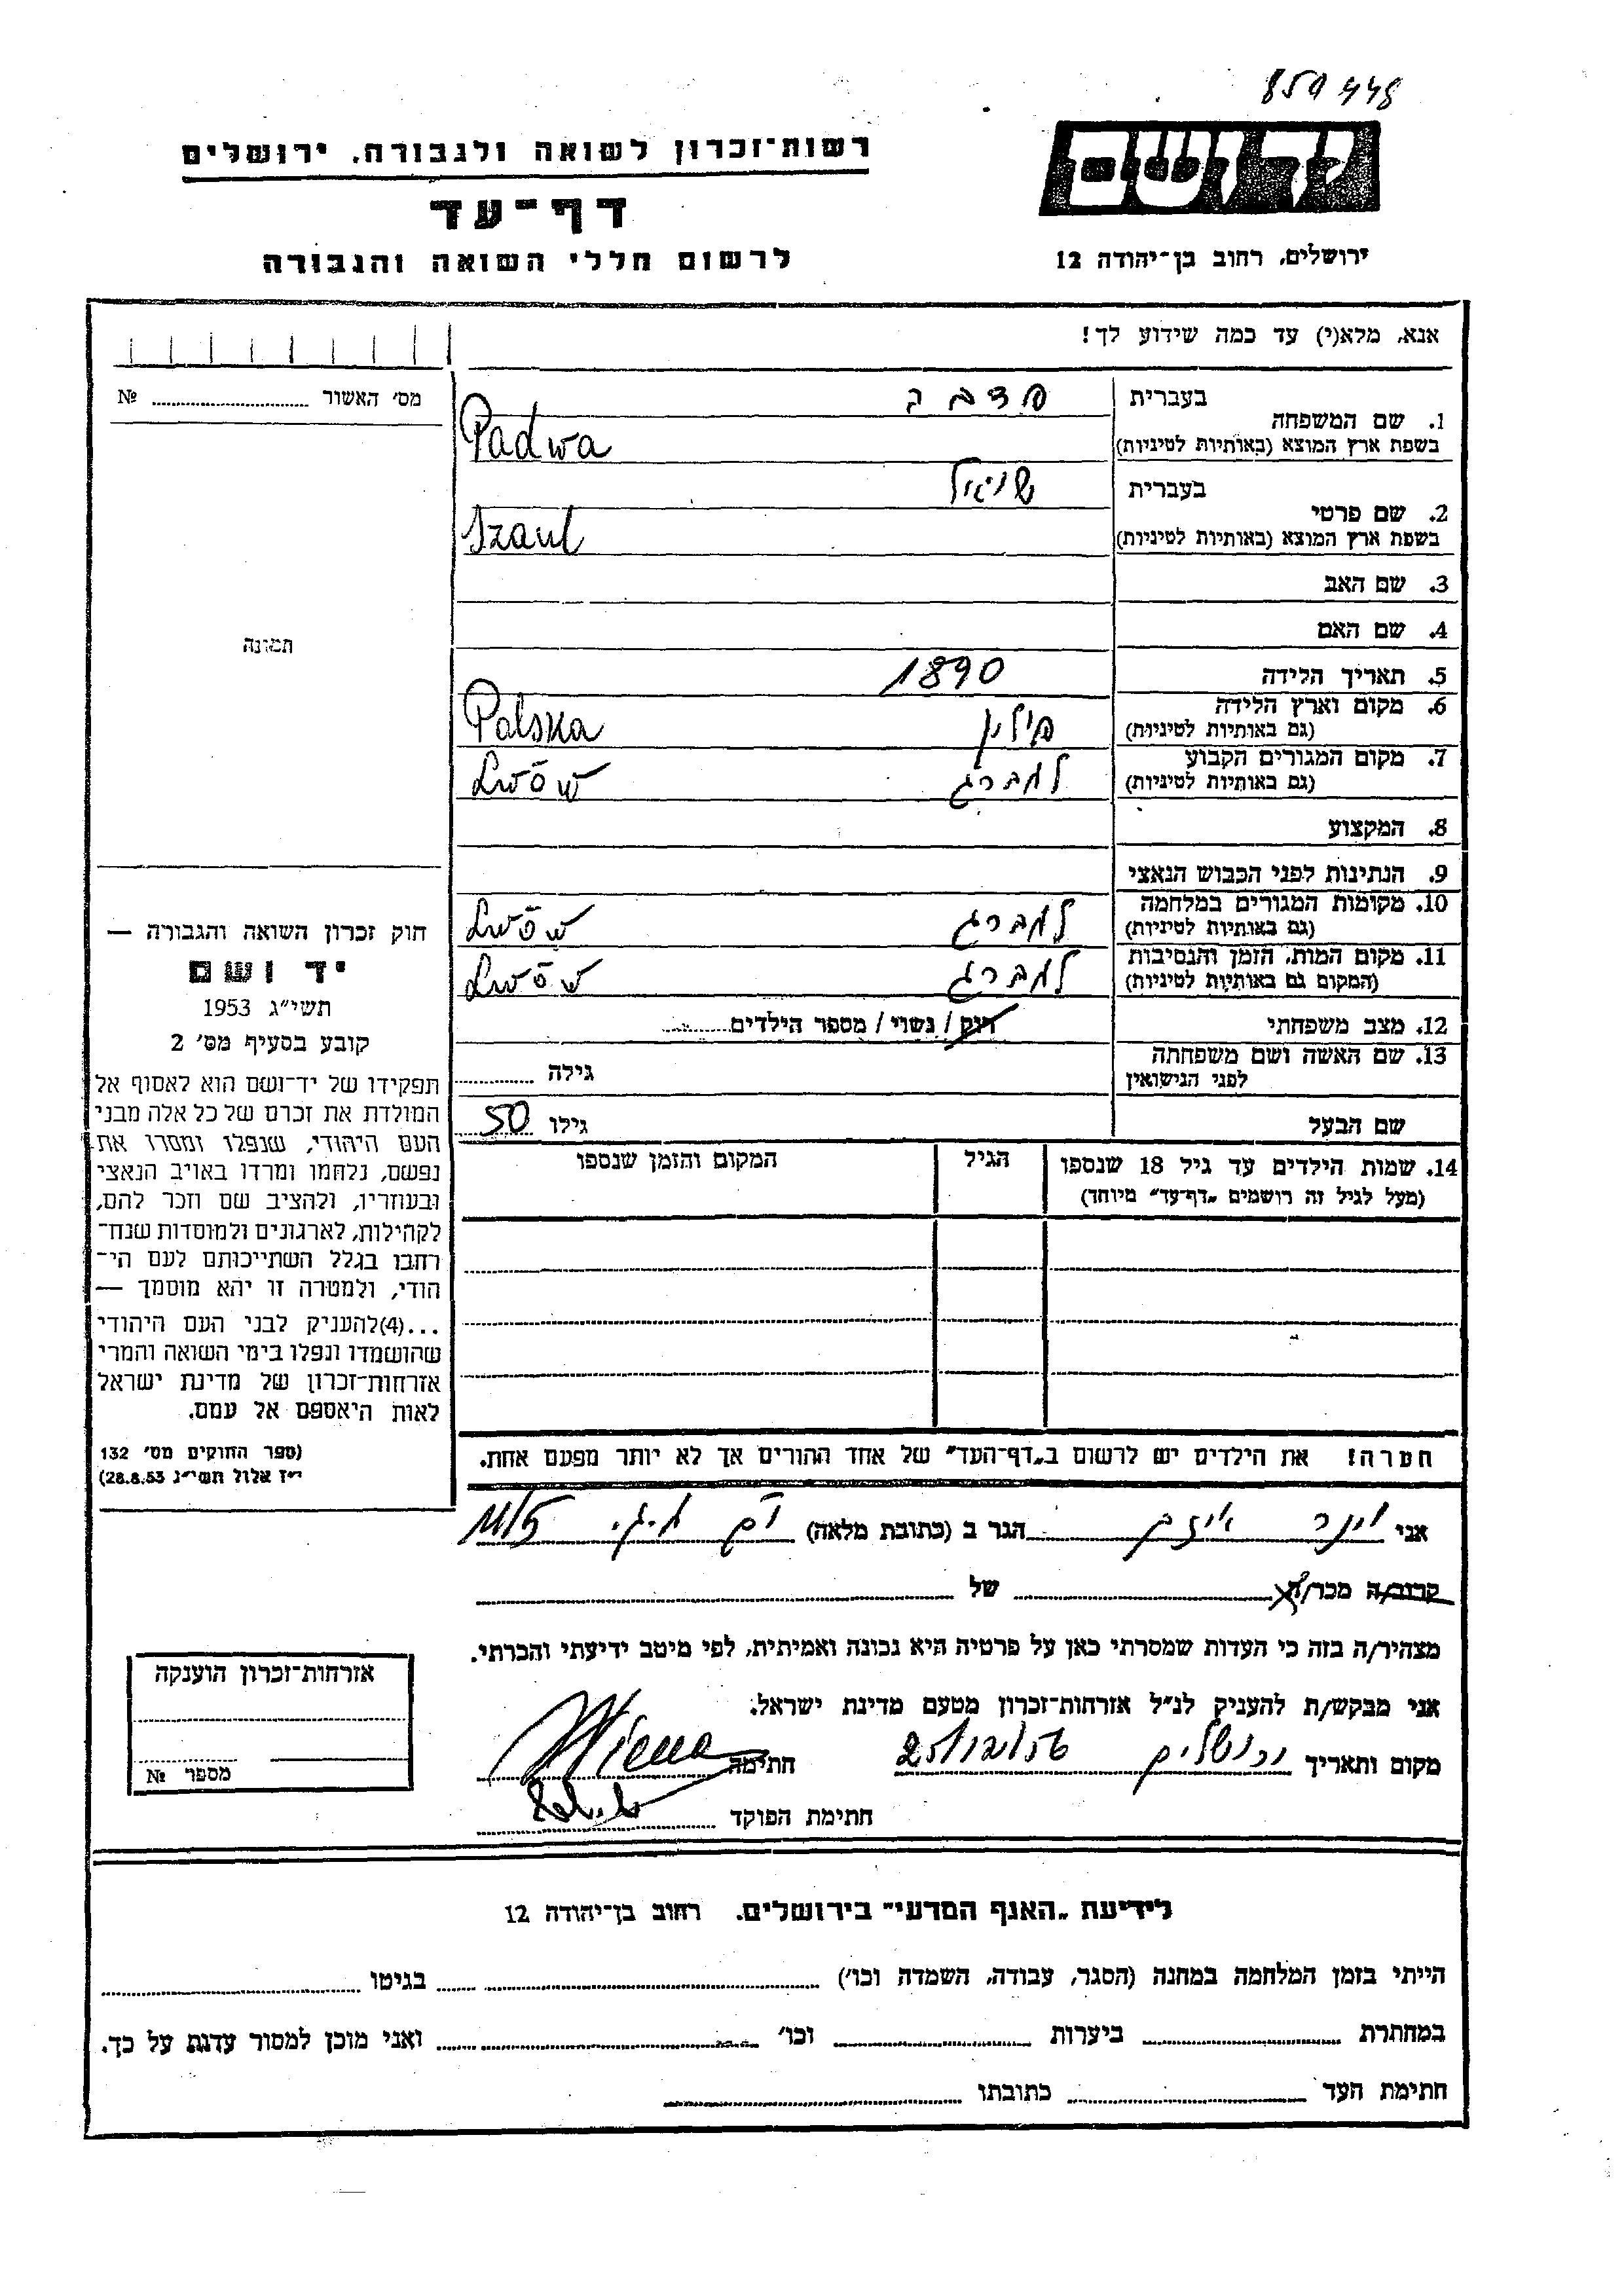 859448
יד ושם
רשות־זכרון לשואה ולגבורה, ירושלים
דף־עד
לרשום חללי השואה והגבורה
ירושלים, רחוב בן־יהודה 12
אנא, מלא(י) עד כמה שידוע לך!
מס׳ האשור № 
1. שם המשפחה
בעברית
בשפת ארץ המוצא (באותיות לטיניות)
Padwa
2. שם פרטי
בעברית
בשפת ארץ המוצא (באותיות לטיניות)
Szaul
3. שם האב
4. שם האם
תמונה
5. תאריך הלידה 1890
6. מקום וארץ הלידה
(גם באותיות לטיניות) פולין Polska
7. מקום המגורים הקבוע
(גם באותיות לטיניות) למברג Lwów
8. המקצוע
9. הנתינות לפני הכבוש הנאצי
10. מקומות המגורים במלחמה
(גם באותיות לטיניות) למברג Lwów
11. מקום המות, הזמן והנסיבות
(המקום גם באותיות לטיניות) למברג Lwów
12. מצב משפחתי רוק / נשוי / מספר הילדים
13. שם האשה ושם משפחתה
לפני הנישואין גילה
שם הבעל גילו 50
14. שמות הילדים עד גיל 18 שנספו הגיל המקום והזמן שנספו
(מעל לגיל זה רושמים „דף־עד״ מיוחד)
הערה! את הילדים יש לרשום ב„דף־העד״ של אחד ההורים אך לא יותר מפעם אחת.
חוק זכרון השואה והגבורה —
יד ושם
תשי״ג 1953
קובע בסעיף מס׳ 2
תפקידו של יד־ושם הוא לאסוף אל
המולדת את זכרם של כל אלה מבני
העם היהודי, שנפלו ומסרו את
נפשם, נלחמו ומרדו באויב הנאצי
ובעוזריו, ולהציב שם וזכר להם,
לקהילות, לארגונים ולמוסדות שנח־
רבו בגלל השתייכותם לעם הי־
הודי, ולמטרה זו יהא מוסמך —
...(4) להעניק לבני העם היהודי
שהושמדו ונפלו בימי השואה והמרי
אזרחות־זכרון של מדינת ישראל
לאות היאספם אל עמם.
(ספר החוקים מס׳ 132
י״ז אלול תשי״ג 28.8.53)
אני הגר ב (כתובת מלאה)
קרוב/ה מכר/ה של
מצהיר/ה בזה כי העדות שמסרתי כאן על פרטיה היא נכונה ואמיתית, לפי מיטב ידיעתי והכרתי.
אני מבקש/ת להעניק לנ״ל אזרחות־זכרון מטעם מדינת ישראל.
מקום ותאריך ירושלים 25/12/56 חתימה
חתימת הפוקד
אזרחות־זכרון הוענקה
מספר №
לידיעת „האגף המדעי״ בירושלים, רחוב בן־יהודה 12
הייתי בזמן המלחמה במחנה (הסגר, עבודה, השמדה וכו׳) בגיטו
במחתרת ביערות וכו׳ ואני מוכן למסור עדות על כך.
חתימת העד כתובתו